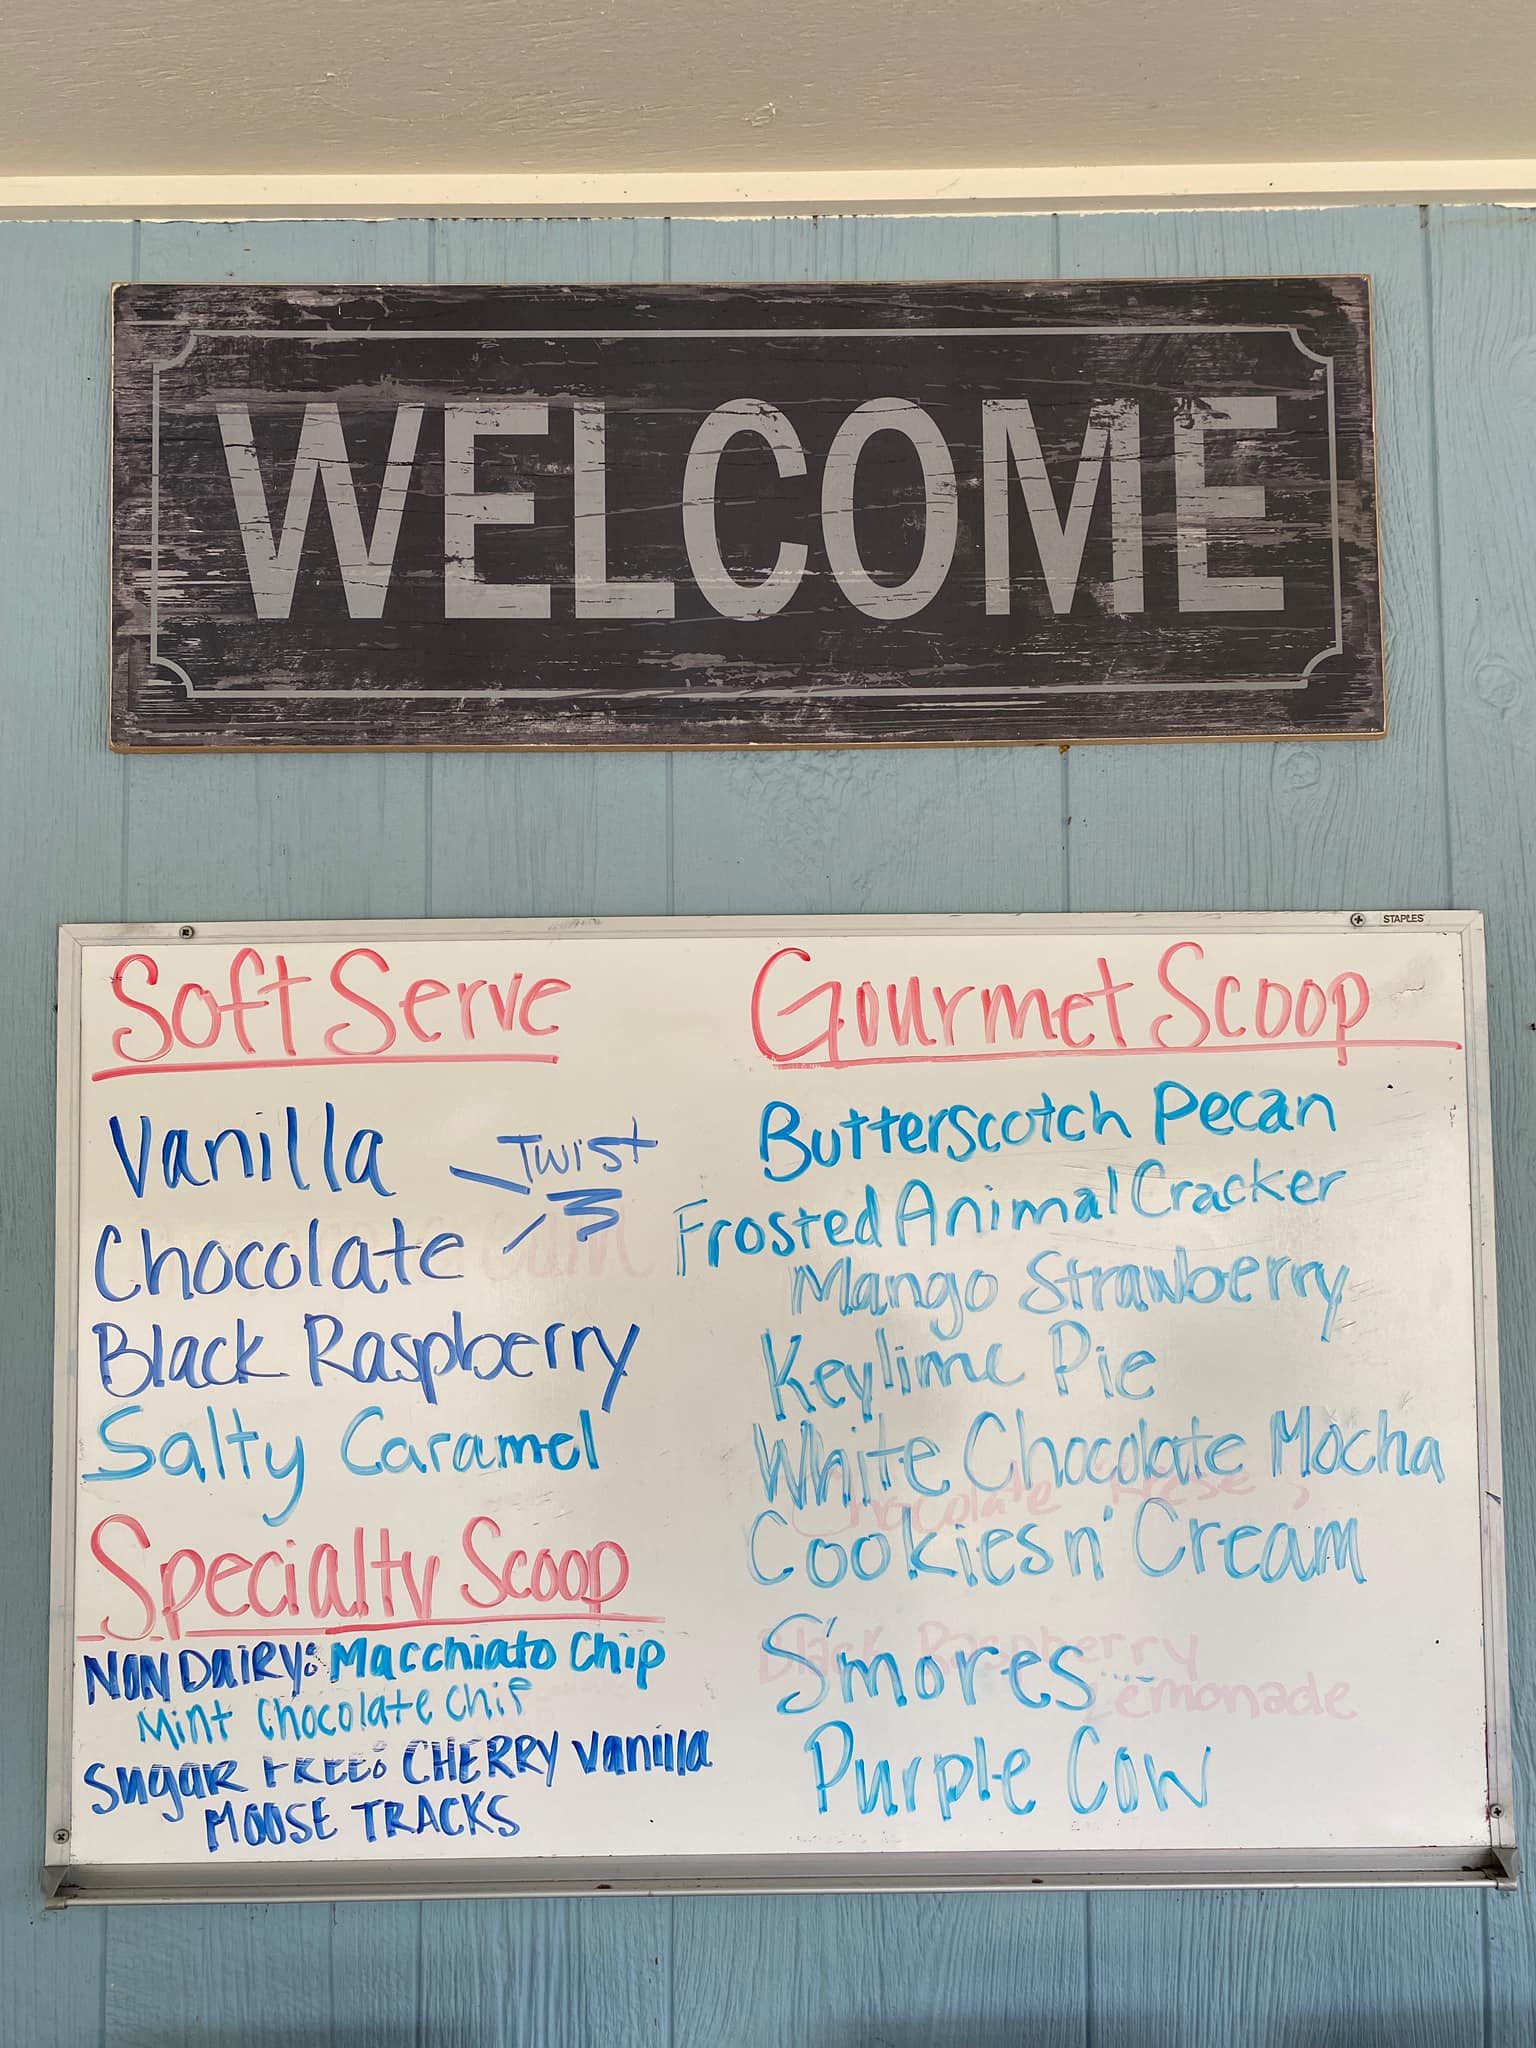 WELCOME
STAPLES
Soft Serve
Vanilla
Twist
Chocolate
Black Raspberry
Salty Caramel
Specialty Scoop
NON DAIRY: Macchiato Chip
Mint Chocolate Chip
Sugar FREE: CHERRY Vanilla
MOOSE TRACKS
Gourmet Scoop
Butterscotch Pecan
Frosted Animal Cracker
Mango Strawberry
Keylime Pie
White Chocolate Mocha
Chocolate
Cookies n' Cream
Black Raspberry
S'mores
Lemonade
Purple Cow